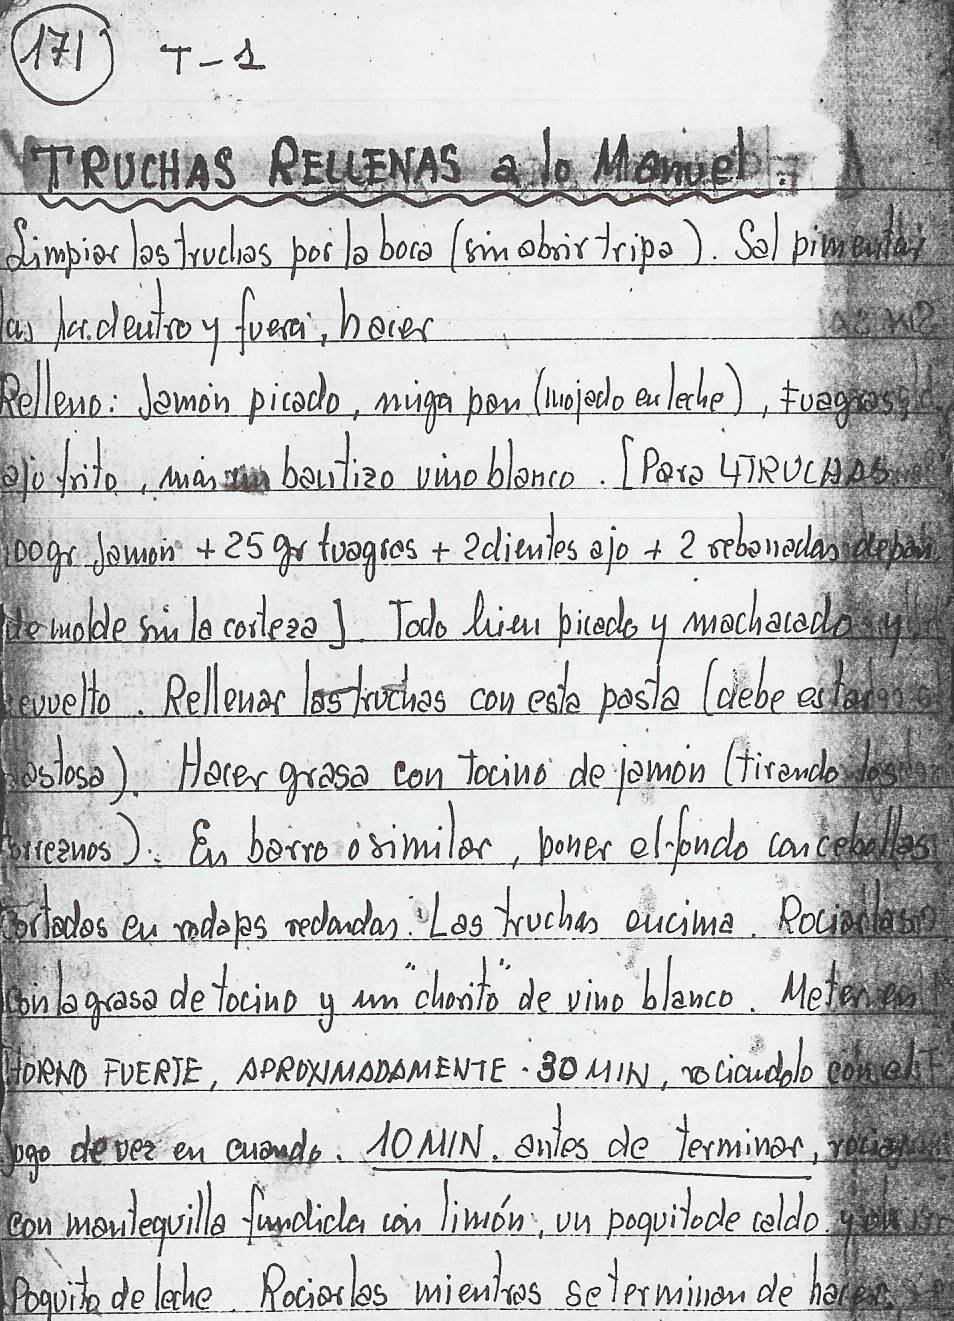 171 T-1
TRUCHAS RELLENAS a lo Manuel:
Limpiar las truchas por la boca (sin abrir tripa). Sal pimentar
las por dentro y fuera, hacer
Relleno: Jamón picado, miga pan (mojado en leche), Fuagras,
ajo frito, más un bautizo vino blanco. [Para 4 TRUCHAS
100 gr Jamón + 25 gr fuagras + 2 dientes ajo + 2 rebanadas de pan
de molde sin la corteza]. Todo bien picado y machacado y
revuelto. Rellenar las truchas con esta pasta (debe estar
pastosa). Hacer grasa con tocino de jamón (tirando los
torreznos). En barro o similar, poner el fondo con cebollas
cortadas en rodajas redondas. Las truchas encima. Rociarlas
con la grasa de tocino y un "chorito" de vino blanco. Meter en
HORNO FUERTE, APROXIMADAMENTE 30 MIN, rociandolo con el
jugo de vez en cuando. 10 MIN. antes de terminar,
con mantequilla fundida con limón, un poquito de caldo y un
Poquito de leche. Rociarlas mientras se terminan de hacer.